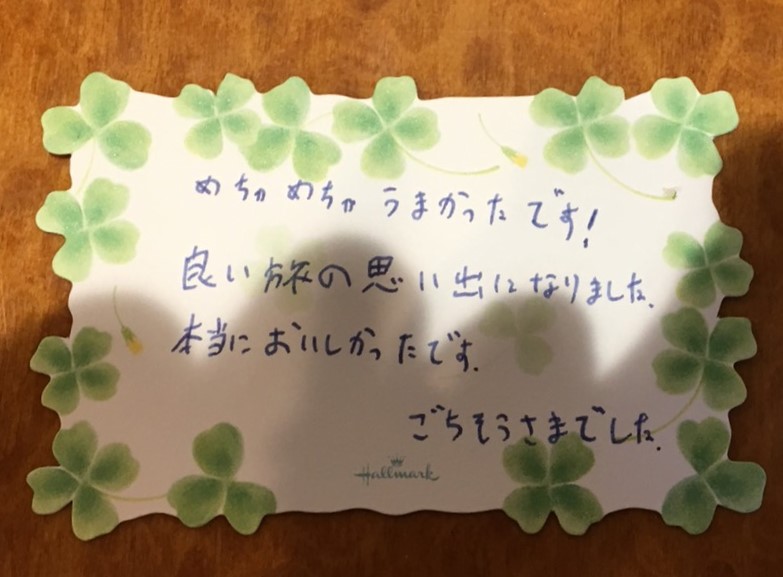 めちゃめちゃうまかったです!
良い旅の思い出になりました.
本当においしかったです.
ごちそうさまでした.
Hallmark